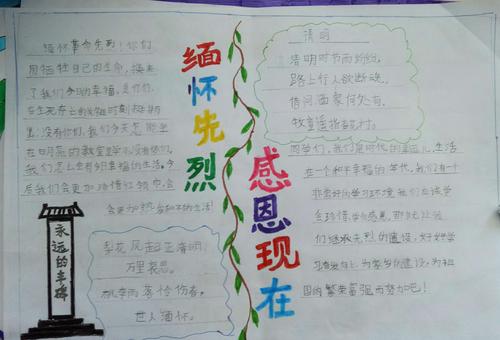 缅怀先烈
感恩现在
缅怀革命先烈！你们
用牺牲自己的生命，换来
了我们今天的幸福，是你们
在生死存亡的
没有你们，我们今天怎能坐
在明亮的教室里学习没有你们，
我们怎么会有明幸福的生活。今
后我们会更加珍惜红领巾，会
会更加热爱如今的生活！
永远的丰碑
梨花风起正清明，
万里哀思。
桃李雨落恰伤春，
世人缅怀。
清明
清明时节雨纷纷，
路上行人欲断魂。
借问酒家何处有，
牧童遥指杏村。
同学们，我们是时代的幸运儿，生活
在一个和平幸福的年代，我们有一个
非常好的学习环境我们应该学
会珍惜，学会感恩，那就让我
们继承先烈的遗设，好好学
为家乡的建设，为祖
国的繁荣富强而努力吧！